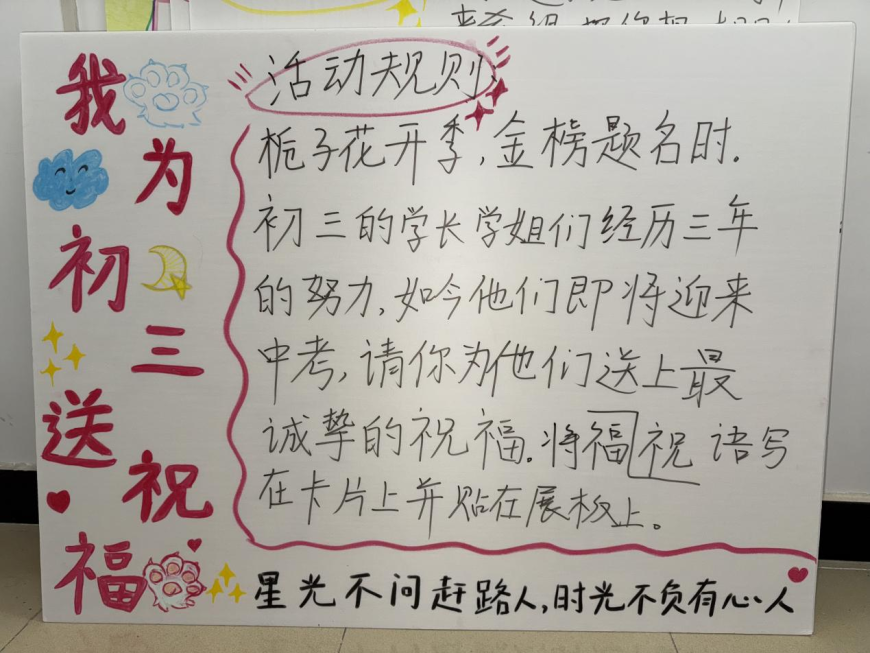 我为初三送祝福
活动规则
栀子花开季,金榜题名时.
初三的学长学姐们经历三年
的努力,如今他们即将迎来
中考,请你为他们送上最
诚挚的祝福.将福祝语写
在卡片上并贴在展板上。
星光不问赶路人,时光不负有心人